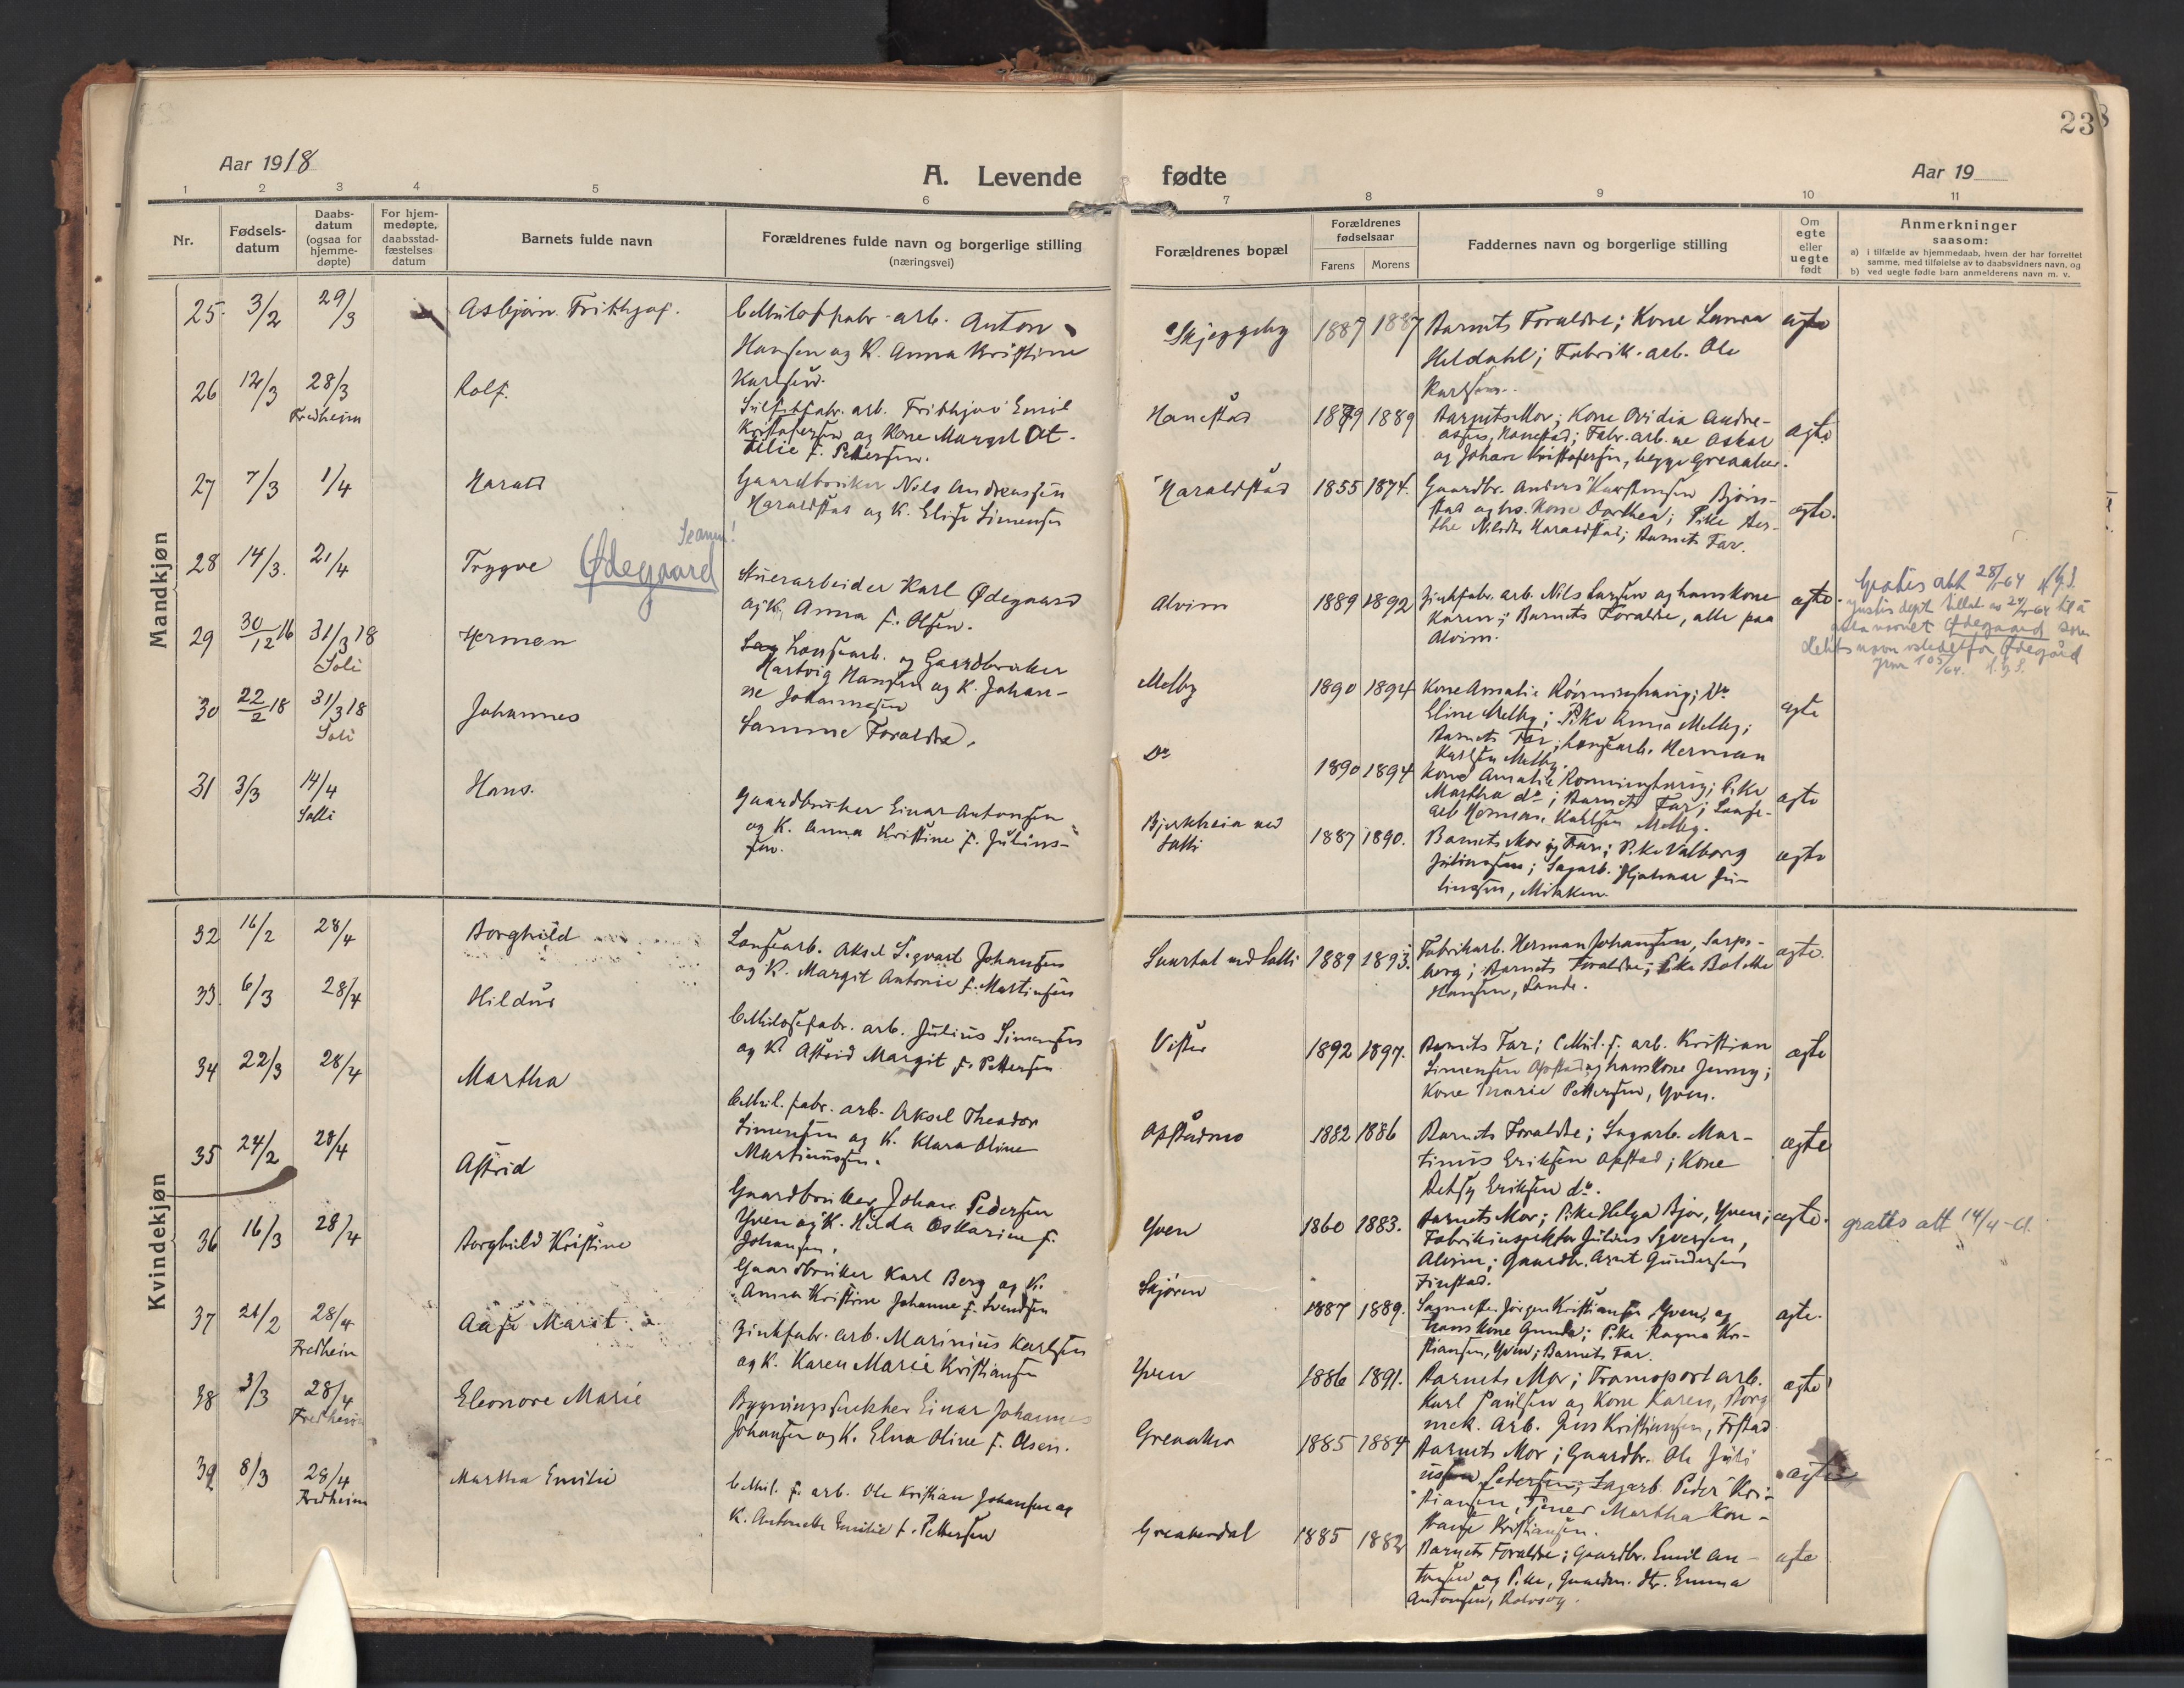 23
Aar 1918
A. Levende fødte
Aar 19
1 2 3 4 5 6 7 8 9 10 11
Nr.
Fødsels-
datum
Daabs-
datum
(ogsaa for
hjemme-
døpte)
For hjem-
medøpte,
daabsstad-
fæstelses
datum
Barnets fulde navn
Forældrenes fulde navn og borgerlige stilling
(næringsvei)
Forældrenes bopæl
Forældrenes
fødselsaar
Farens
Morens
Faddernes navn og borgerlige stilling
Om
egte
eller
uegte
født
Anmerkninger
saasom:
a) i tilfælde av hjemmedaab, hvem der har forrettet
samme, med tilføielse av to daabsvidners navn, og
b) ved uegte fødte barn anmelderens navn m. v.
Mandkjøn
25. 3/2 29/3
Asbjørn Frithjof.
Cellulosefabr.-arb. Anton
Hansen og K. Anna Kristine
Karlsen.
Skjeggeby
1887 1887
Barnets Forældre; Kone Laura
Heldahl; Fabrik.arb. Ole
Karlsen.
ægte
26 12/3 28/3
Fredheim
Rolf.
Sulfitfabr. arb. Frithjov Emil
Kristofersen og Kone Margit Ot-
tilie f. Pettersen.
Hanestad
1889 1889
Barnets Mor; Kone Ovidia Andre-
asen, Hanestad; Fabr.arb.ne Oskar
og Johan Kristofersen, begge Greaaker.
ægte
27 7/3 1/4
Harald
Gaardbruker Nils Andreassen
Haraldstad og K. Elise Simensen
Haraldstad
1855 1874.
Gaardbr. Anders Karstensen Bjørn-
stad og hs. Kone Dorthea; Pike Ber-
the Nilsdtr Haraldstad; Barnets Far.
ægte.
28 14/3. 21/4
Trygve Ødegaard
Struerarbeider Karl Ødegaard
og K. Anna f. Olsen.
Alvim
1889 1892
Zinkfabr. arb. Nils Larsen og hans kone
Karen; Barnets Forældre, alle paa
Alvim.
ægte.
Gratis att 28/7-64
Justisdept tillat av 24/7-64 til å
anta navnet Ødegaard som
slektsnavn istedetfor Ødegård
29 30/12 16 31/3 18
Soli
Herman
Lansearb. og Gaardbruker
Hartvig Hansen og K. Johan-
ne Johannesen
Melby
1890 1894
Kone Amalie Rønninghaug; Do
Eline Melby; Pike Anna Melby;
Barnets Far; Lansearb. Herman
Karlsen Melby.
ægte
30 22/2 18 31/3 18
Soli
Johannes
Samme Forældre.
Do
1890 1894
Kone Amalie Rønninghaug; Pike
Martha do; Barnets Far; Lanse-
arb Herman Karlsen Melby.
ægte
31 3/3 14/4
Solli
Hans.
Gaardbruker Einar Antonsen
og K. Anna Kristine f. Julius-
sen.
Bjerkheia ved
Solli
1887 1890.
Barnets Mor og Far; Pike Valborg
Juliussen; Sagarb. Hjalmar Ju-
liussen,
ægte
Kvindekjøn
32 16/2 28/4
Borghild
Lansearb. Aksel Sigvart Johansen
og K. Margit Antonie f. Martinsen
ved Solli
1889 1893.
Fabrikarb. Herman Johansen, Sarps-
borg; Barnets Forældre; Pike Bolette
Hansen, Sande.
ægte.
33. 6/3 28/4
Hildur
Cellulosefabr. arb. Julius Simensen
og K. Astrid Margit f. Pettersen
Vister
1892 1897.
Barnets Far; Cellul. f. arb. Kristian
Simensen Opstad og hans Kone Jenny;
Kone Marie Pettersen, Yven.
ægte
34 22/3 28/4
Martha
Cellul. fabr. arb. Aksel Theodor
Simensen og K. Klara Oline
Martinussen.
Opstadmo
1882 1886
Barnets Forældre; Sagarb. Mar-
tinus Eriksen Opstad; Kone
Betsy Eriksen do.
ægte
35 24/2 28/4
Astrid
Gaardbruker Johan Pedersen
Yven og K. Hilda Oskarine f.
Johansen.
Yven
1860 1883.
Barnets Mor; Pike Helga Bjor, Yven;
Fabrikinspektør Julius Syversen,
Alvim; Gaardbr. Arnt Gundersen
Finstad.
ægte.
gratis att 14/4-
36 16/3 28/4
Borghild Kristine
Gaardbruker Karl Berg og K.
Anna Kristine Johanne f. Svendsen
Skjøren
1887 1889.
Sagmester Jørgen Kristiansen Yven, og
hans Kone Gunda; Pike Ragna Kri-
stiansen, Yven; Barnets Far.
ægte.
37 21/2 28/4
Fredheim
Aase Marit.
Zinkfabr. arb. Marinius Karlsen
og K. Karen Marie Kristiansen
Yven
1886 1891.
Barnets Mor; Transportarb.
Karl Paulsen og Kone Karen, Borg
mek. Arb. Jens Kristiansen,
ægte
38 3/3 28/4
Fredheim
Eleonore Marie
Bygningssnekker Einar Johannes
Johansen og K. Elna Oline f. Olsen.
Greaaker
1885 1884
Barnets Mor; Gaardbr. Ole Juli
ussen Pedersen; Sagarb. Peder Kri-
stiansen, Tjener Martha Kon-
stanse Kristiansen.
ægte
39 8/3 28/4
Fredheim
Martha Emilie
Cellul. f. arb. Ole Kristian Johansen og
K. Antonette Emilie f. Pettersen
Greakerdal
1885 1882
Barnets Forældre; Gaardbr. Emil An-
tonsen og Pike, Gaardm. dtr. Emma
Antonsen, Rolvsøy.
ægte